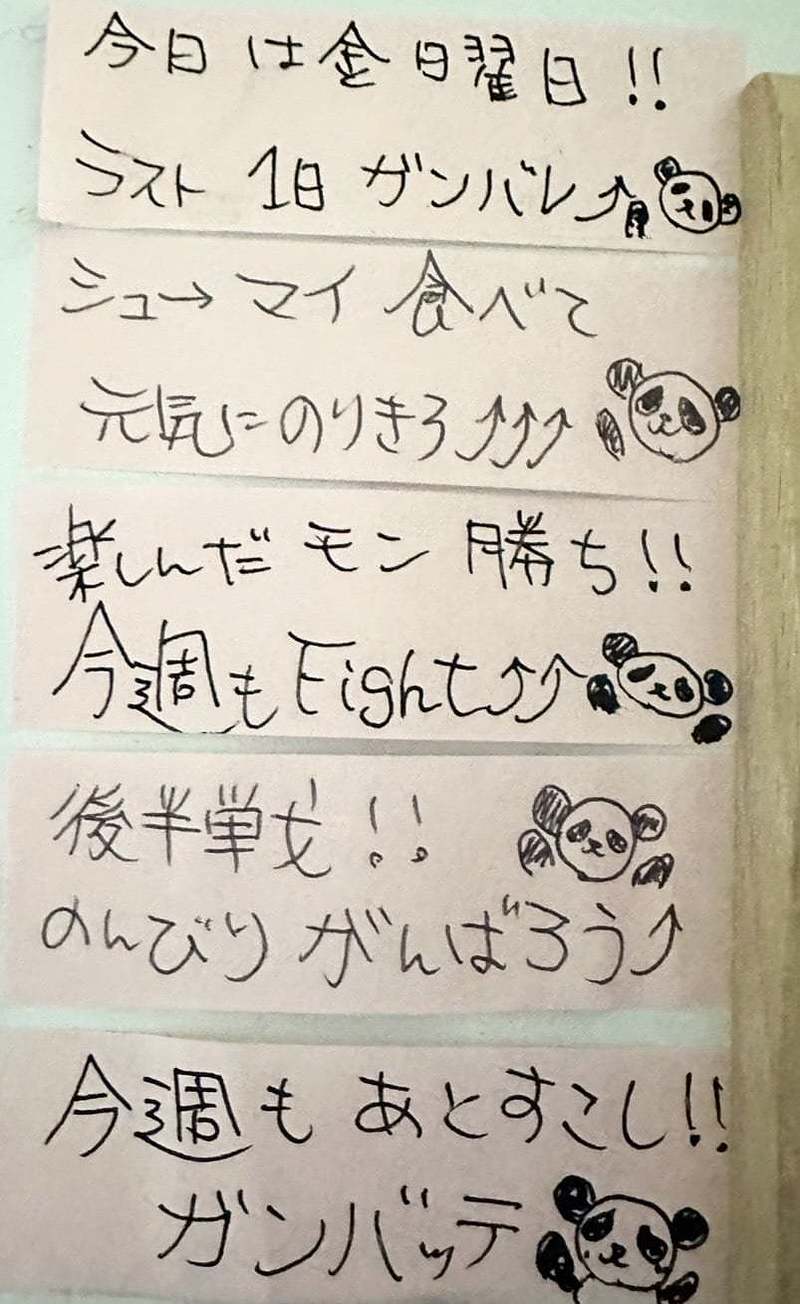 今日は金曜日!!
ラスト 1日 ガンバレ⤴
シューマイ 食べて
元気にのりきろ⤴⤴⤴
楽しんだ モン 勝ち!!
今週も Fight⤴⤴
後半戦!!
のんびり がんばろう⤴
今週も あとすこし!!
ガンバッテ